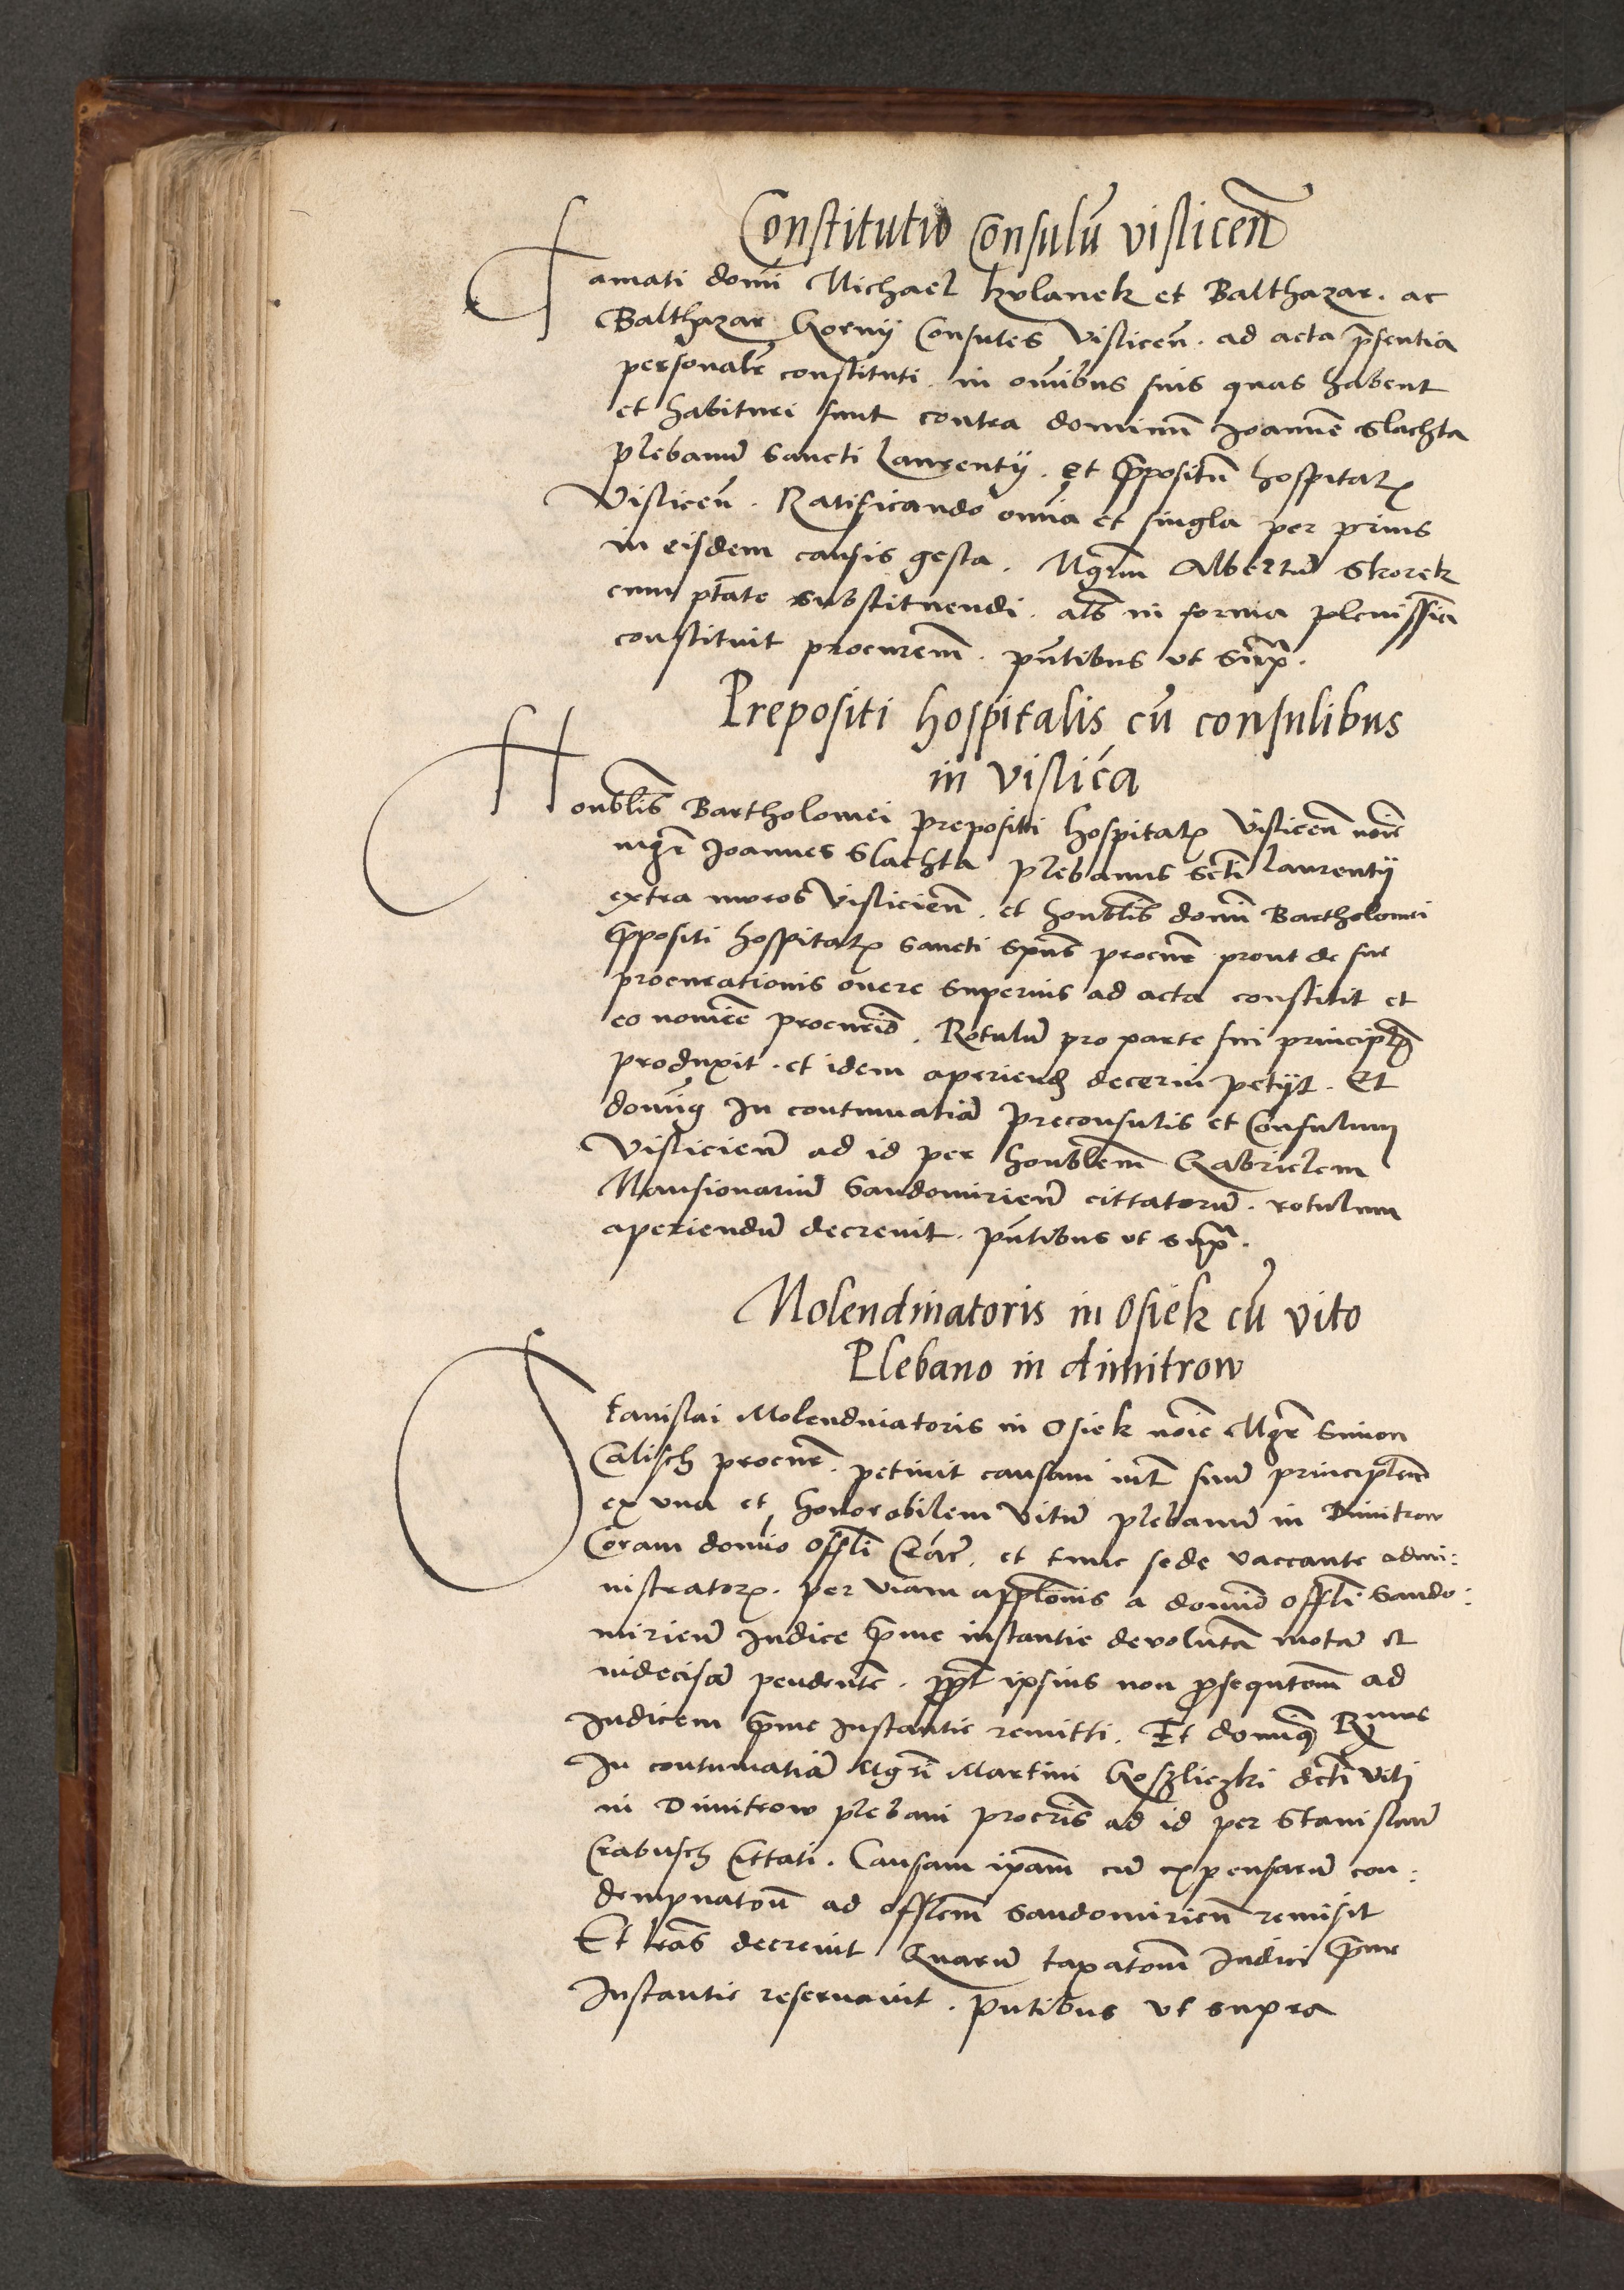 Constitutio Consulū vislicen̄
Famati domī Michael kulanek et Balthazar. ac
Balthazar Gornij Consules Vislicen̄. ad acta p̄sentia
personalr̄ constituti. in om̄ibus suis quas habent
et habituri sunt contra dominū Joannē Slachta
plebanū Sancti Laurentij. Et p̄positū hospitał
Vislicen̄. Ratificando om̄ia et singla per prius
in eisdem causis gesta. Mgr̄m Albertū Skorek
cum ptāte substituendi. als̄ in forma plenissīa
constituit procurem̄. pn̄tibus ut supꝛ̄.
Prepositi hospitalis cū consulibus
in vislicā
Honblis̄ Bartholomei prepositi hospitał Vislicen̄ noīe
mgr̄ Joannes Slachta plebanus Scti Laurentij
extra muros Vislicien̄. et honblis̄ domī Bartholomei
p̄positi hospitał Sancti Spūs procur̄ prout de sue
procurationis onere superius ad acta constitit et
eo nomīe procurīo. Rotulū pro parte sui principł
produxit. et idem aperiend̄ decerni petijt. Et
domīꝯ In contumatiā preconsulis et Consulum
Vislicien̄ ad id per honblem̄ Gabrielem
Mansionariū Sandomirien̄ cittatorū. rotulum
aperiendū decrevit. pn̄tibus ut supꝛ̄.
Molendinatoris in Osiek cū vito
Plebano in dimitrow
Stanislai Molendinatoris in Osiek noīe Mgr̄ Simon
Calisch procur̄. petiuit causam int̄ suū principlem̄
ex una et honorabilem Vitū plebanū in Dimitrow
Coram domīo Offli Crac̄. et tunc sede vaccante admi:
nistratoꝝ. per viam applōnis a domīo Offli Sando:
mirien̄ Judice p̄me instantie devolutā motā et
indecisā pendentē. ꝓpt̄ ipsius non ꝓsequtōm̄ ad
Judicem p̄me Instantie remitti. Et domīꝯ Rmus
In contumatiā Mgri Martini Goszliczki dcti Viti
in Dimitrow plebani procris̄ ad id per Stanislaū
Crabusch Cittati. Causam ipam̄ cū expensarū con:
dempnatōn̄ ad offlem̄ Sandomirien̄ remisit
Et lrās decrevit Quarū taxatōm̄ Judici p̄me
Instantie reservavit. pn̄tibus ut supra